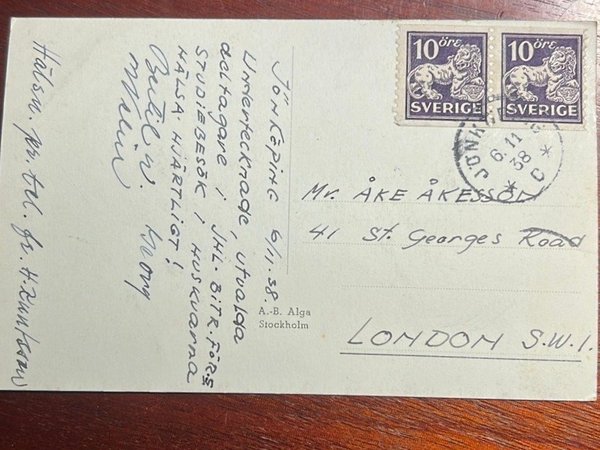 JÖNKÖPING 6/11.38.
Undertecknade, utvalda
deltagare i JHL-BITR.FÖR:S
STUDIEBESÖK I HUSKVARNA
HÄLSA HJÄRTLIGT!
Bertil W.
Hälsn. pr. tel. fr. H.
A.-B. Alga
Stockholm
10 ÖRE
SVERIGE
10 ÖRE
SVERIGE
6.11
38
Mr. ÅKE ÅKESSON
41 St. Georges Road
LONDON S.W.1.